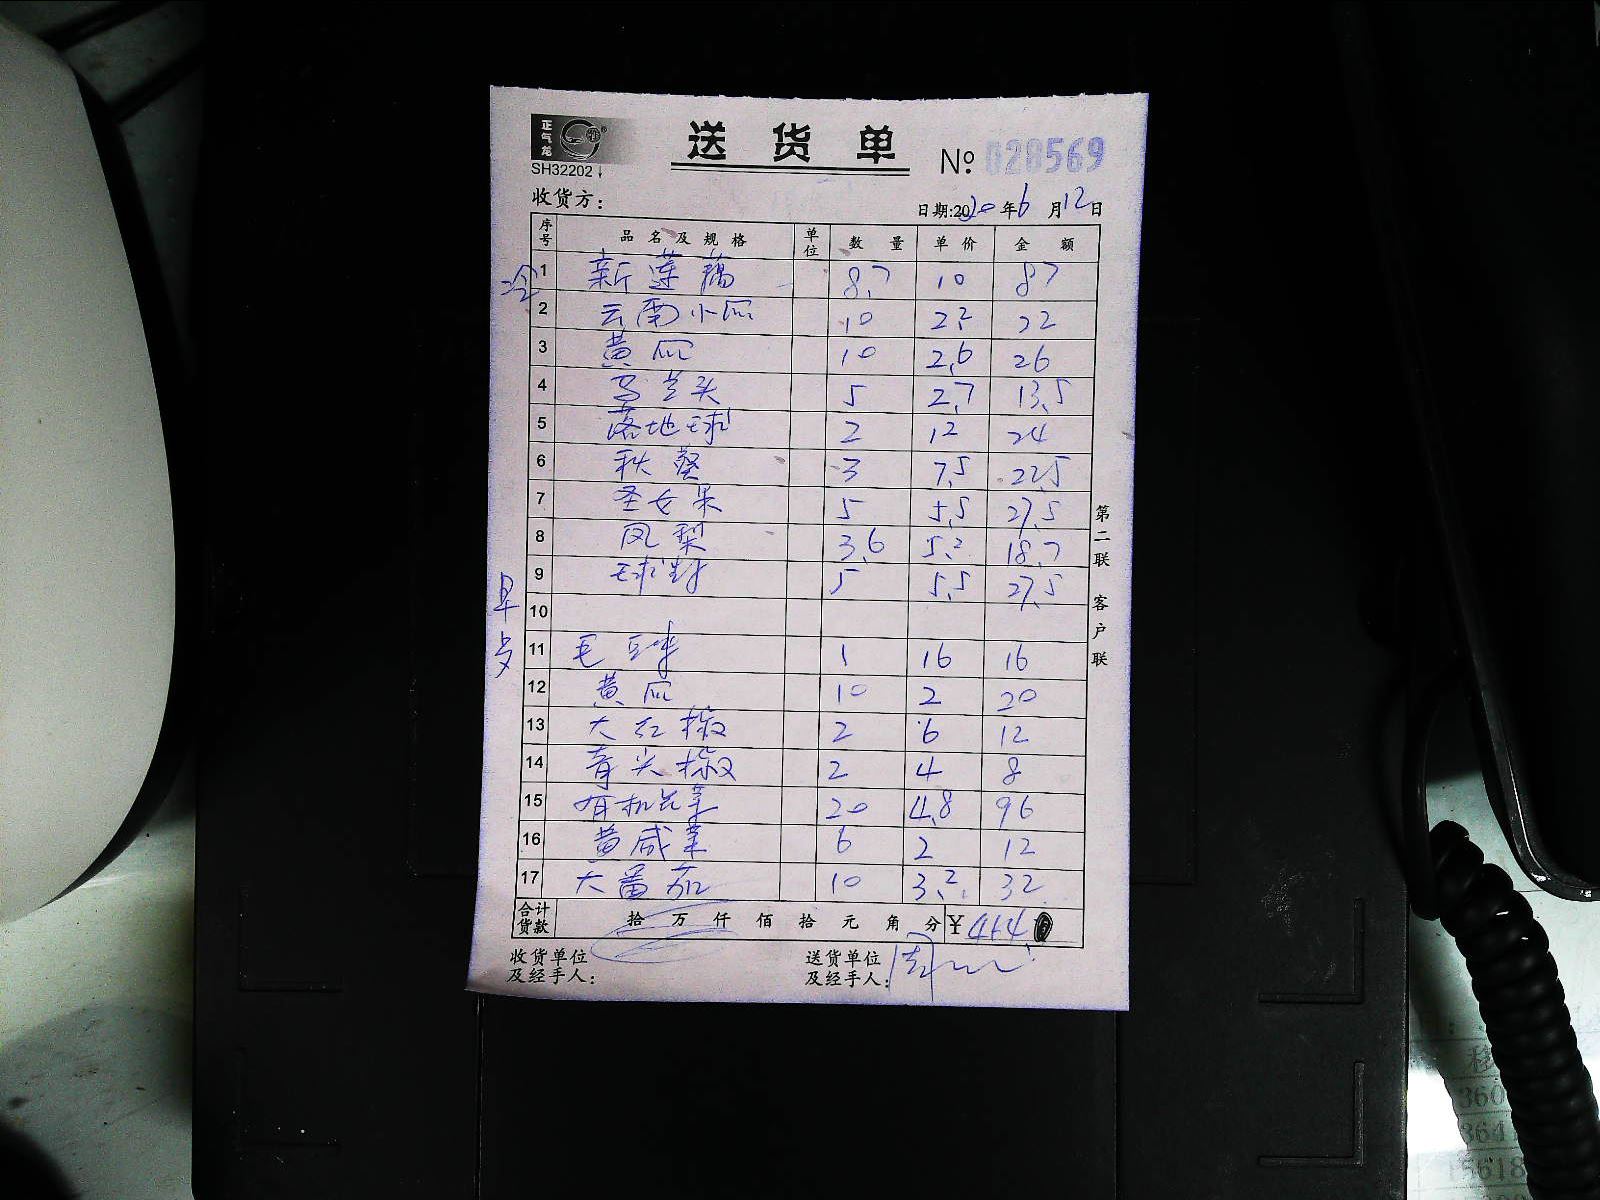 正气龙
SH32202
送货单
No. 028569
收货方：
日期:2020年6月12日
序号 品名及规格 单位 数量 单价 金额
冷
1 新莲藕 8.7 10 87
2 云南小瓜 10 2.2 22
3 黄瓜 10 2.6 26
4 马兰头 5 2.7 13.5
5 落地球 2 12 24
6 秋葵 3 7.5 22.5
7 圣女果 5 5.5 27.5
8 凤梨 3.6 5.2 18.7
9 球生 5 5.5 27.5
早点
10
11 毛豆米 1 16 16
12 黄瓜 10 2 20
13 大红椒 2 6 12
14 青尖椒 2 4 8
15 有机花菜 20 4.8 96
16 黄咸菜 6 2 12
17 大番茄 10 3.2 32
合计货款 拾 万 仟 佰 拾 元 角 分 ¥ 464
收货单位及经手人：
送货单位及经手人：
第二联 客户联